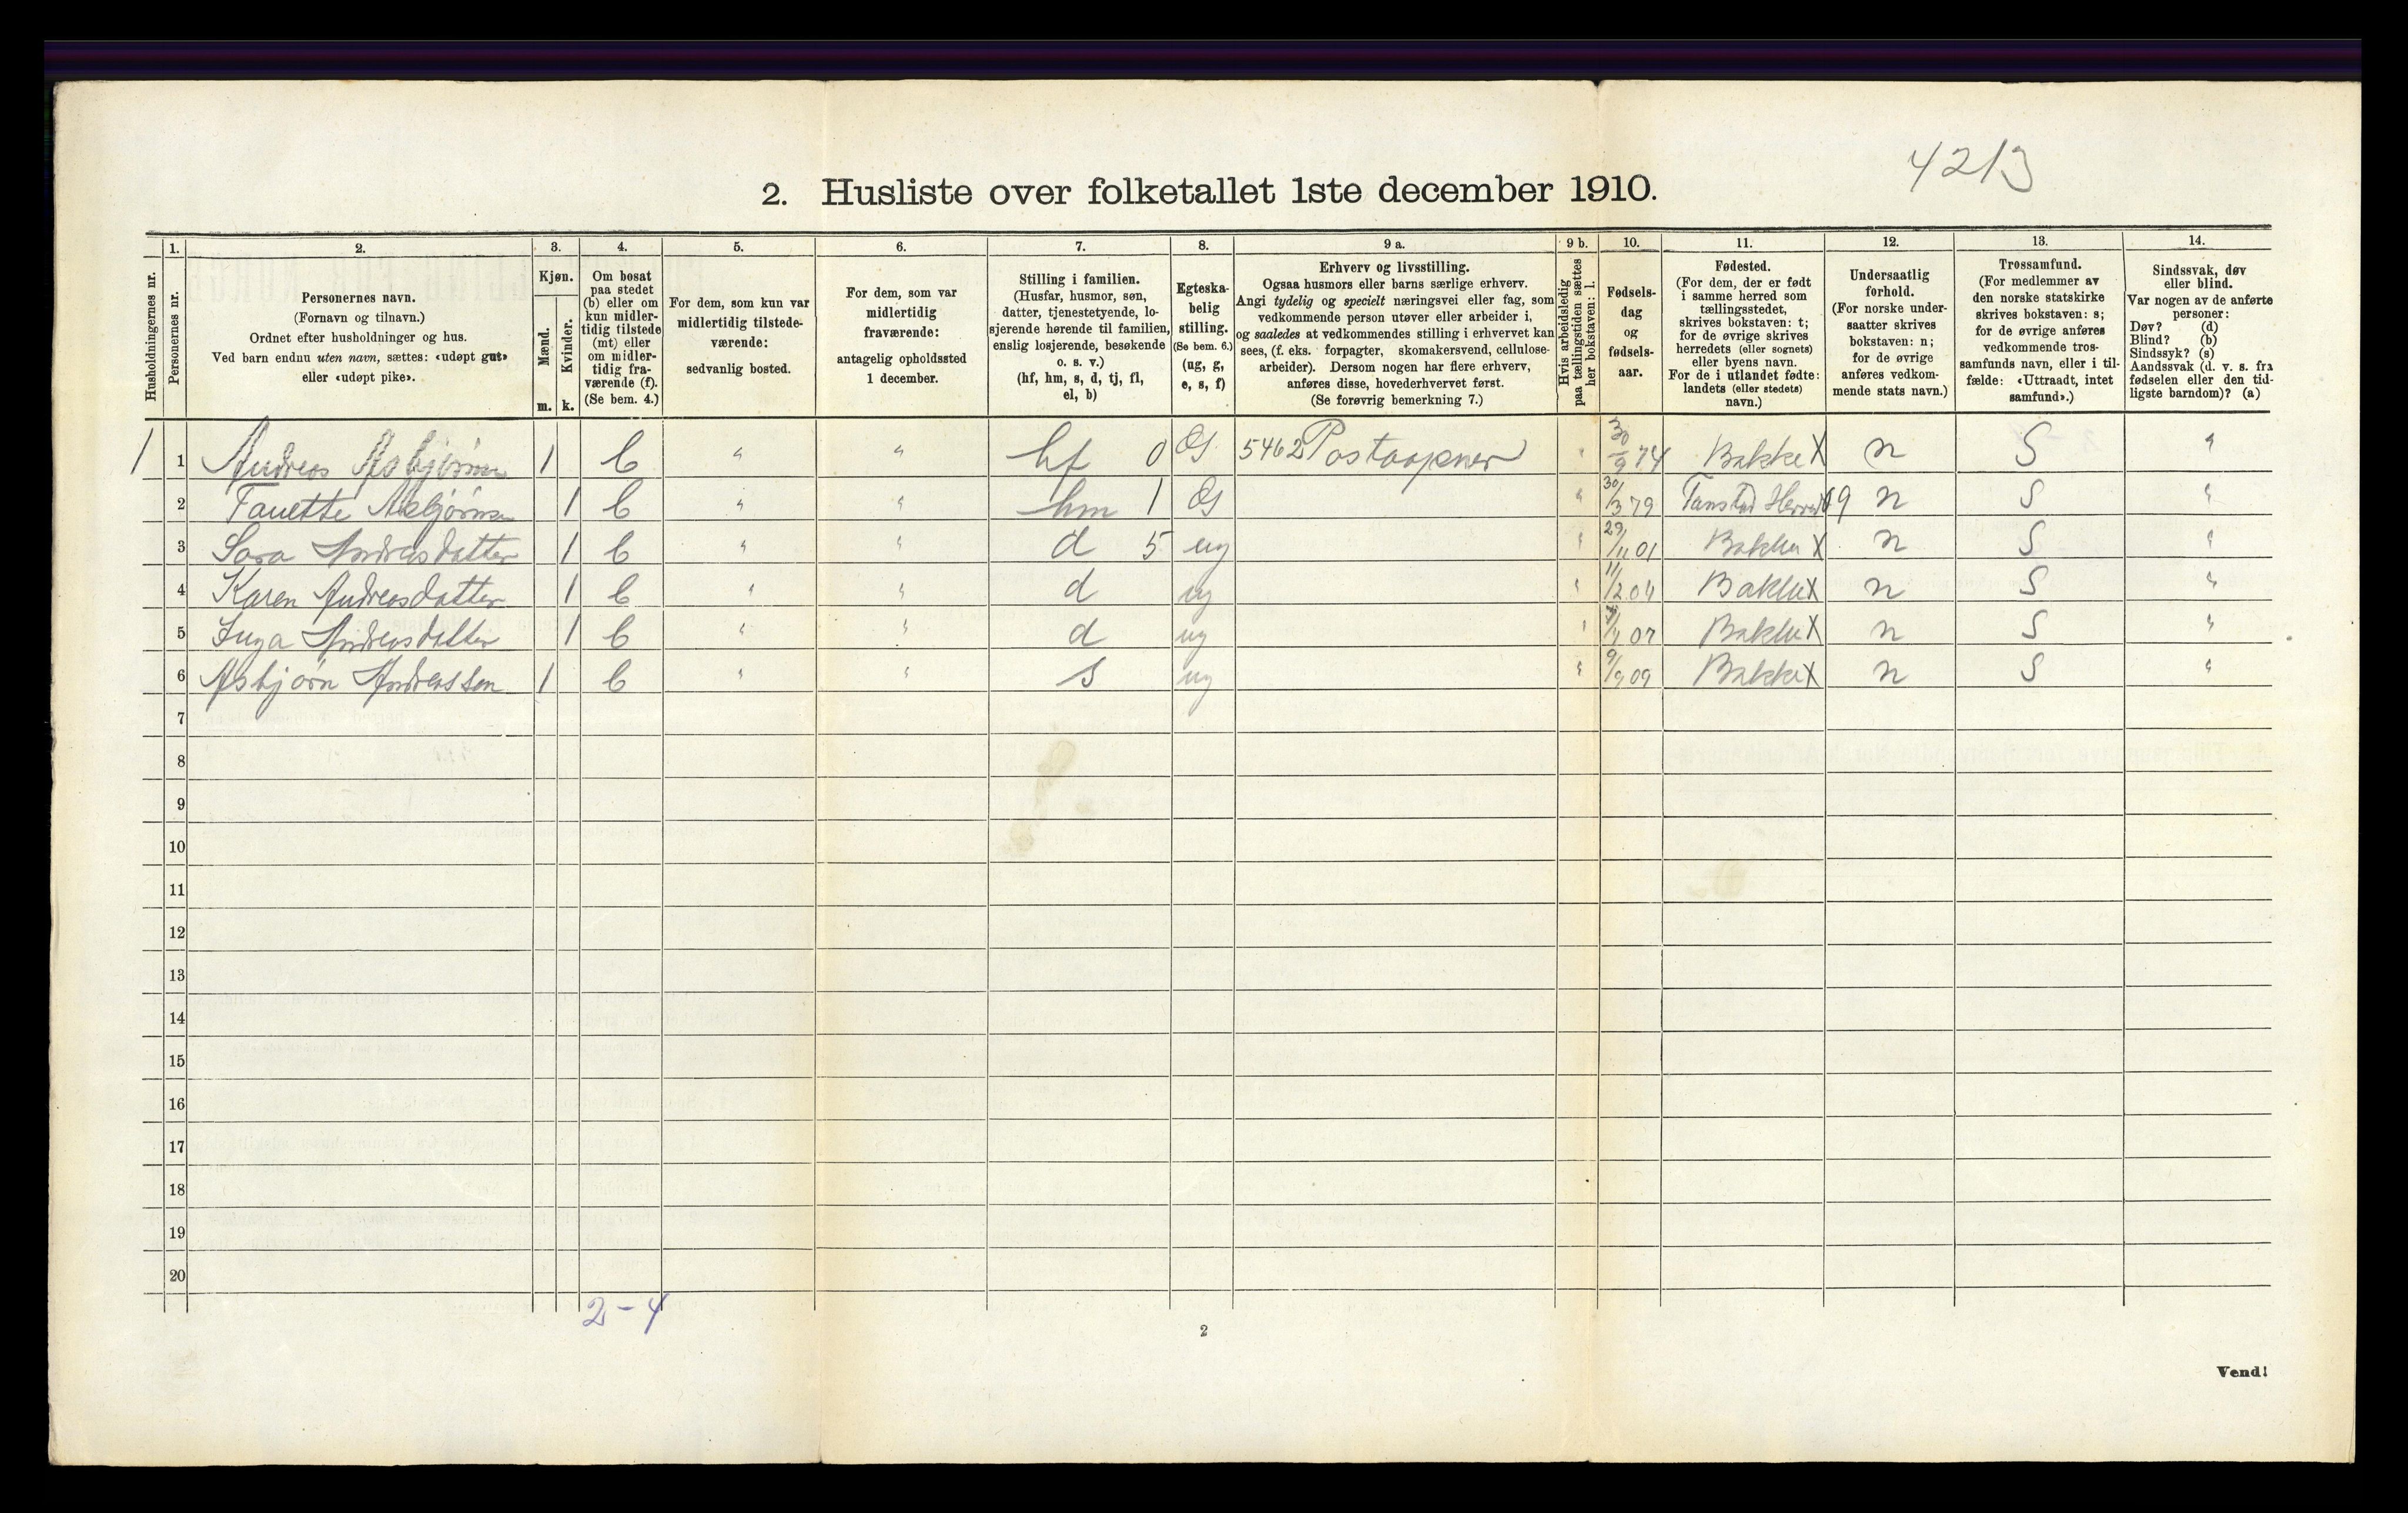 4213
2. Husliste over folketallet 1ste december 1910.
Husholdningernes nr.
1. Personernes nr.
2. Personernes navn.
(Fornavn og tilnavn.)
Ordnet efter husholdninger og hus.
Ved barn endnu uten navn, sættes: «udøpt gut»
eller «udøpt pike».
3. Kjøn.
Mænd. m.
Kvinder. k.
4. Om bosat
paa stedet
(b) eller om
kun midler-
tidig tilstede
(mt) eller
om midler-
tidig fra-
værende (f).
(Se bem. 4.)
5. For dem, som kun var
midlertidig tilstede-
værende:
sedvanlig bosted.
6. For dem, som var
midlertidig
fraværende:
antagelig opholdssted
1 december.
7. Stilling i familien.
(Husfar, husmor, søn,
datter, tjenestetyende, lo-
sjerende hørende til familien,
enslig losjerende, besøkende
o. s. v.)
(hf, hm, s, d, tj, fl,
el, b)
8. Egteska-
belig
stilling.
(Se bem. 6.)
(ug, g,
e, s, f)
9 a. Erhverv og livsstilling.
Ogsaa husmors eller barns særlige erhverv.
Angi tydelig og specielt næringsvei eller fag, som
vedkommende person utøver eller arbeider i,
og saaledes at vedkommendes stilling i erhvervet kan
sees, (f. eks. forpagter, skomakersvend, cellulose-
arbeider). Dersom nogen har flere erhverv,
anføres disse, hovederhvervet først.
(Se forøvrig bemerkning 7.)
9 b. Hvis arbeidsledig
paa tællingstiden sættes
her bokstaven: l.
10. Fødsels-
dag
og
fødsels-
aar.
11. Fødested.
(For dem, der er født
i samme herred som
tællingsstedet,
skrives bokstaven: t;
for de øvrige skrives
herredets (eller sognets)
eller byens navn.
For de i utlandet fødte:
landets (eller stedets)
navn.)
12. Undersaatlig
forhold.
(For norske under-
saatter skrives
bokstaven: n;
for de øvrige
anføres vedkom-
mende stats navn.)
13. Trossamfund.
(For medlemmer av
den norske statskirke
skrives bokstaven: s;
for de øvrige anføres
vedkommende tros-
samfunds navn, eller i til-
fælde: «Uttraadt, intet
samfund».)
14. Sindssvak, døv
eller blind.
Var nogen av de anførte
personer:
Døv? (d)
Blind? (b)
Sindssyk? (s)
Aandssvak (d. v. s. fra
fødselen eller den tid-
ligste barndom)? (a)
1 1 Andreas Asbjørnsen 1 b " " hf 0 G 5462 Postaapner " 30/9 74 Bakke X n S "
2 Fanette Asbjørnsen 1 b " " hm 1 G " 30/3 79 Herred n S "
3 Sara Andreasdatter 1 b " " d 5 ug " 29/11 01 Bakke X n S "
4 Karen Andreasdatter 1 b " " d ug " 11/2 04 Bakke X n S "
5 Inga Andreasdatter 1 b " " d ug " 07 Bakke X n S "
6 Asbjørn Andreassen 1 b " " s ug " 9/9 09 Bakke X n S "
7
8
9
10
11
12
13
14
15
16
17
18
19
20
2-4
2
Vend!